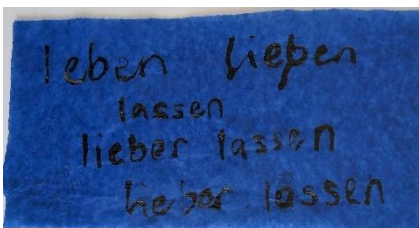 leben lieben
lassen
lieber lassen
lieber lassen